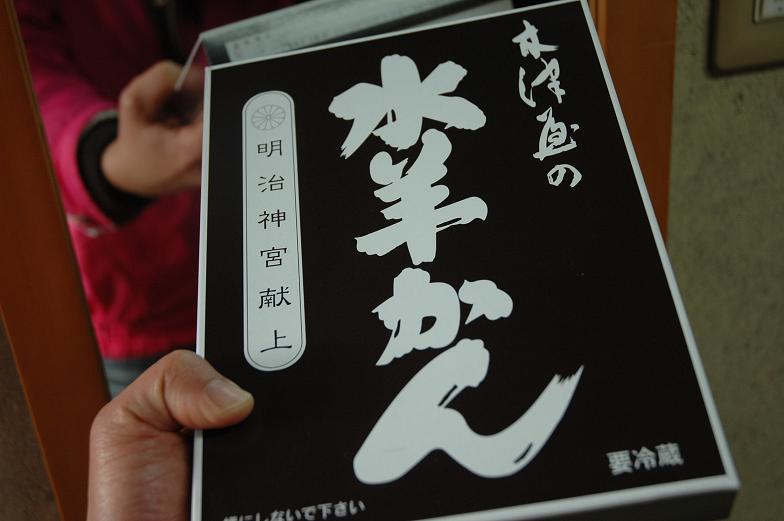 木津屋の
水羊かん
明治神宮献上
要冷蔵
横にしないで下さい